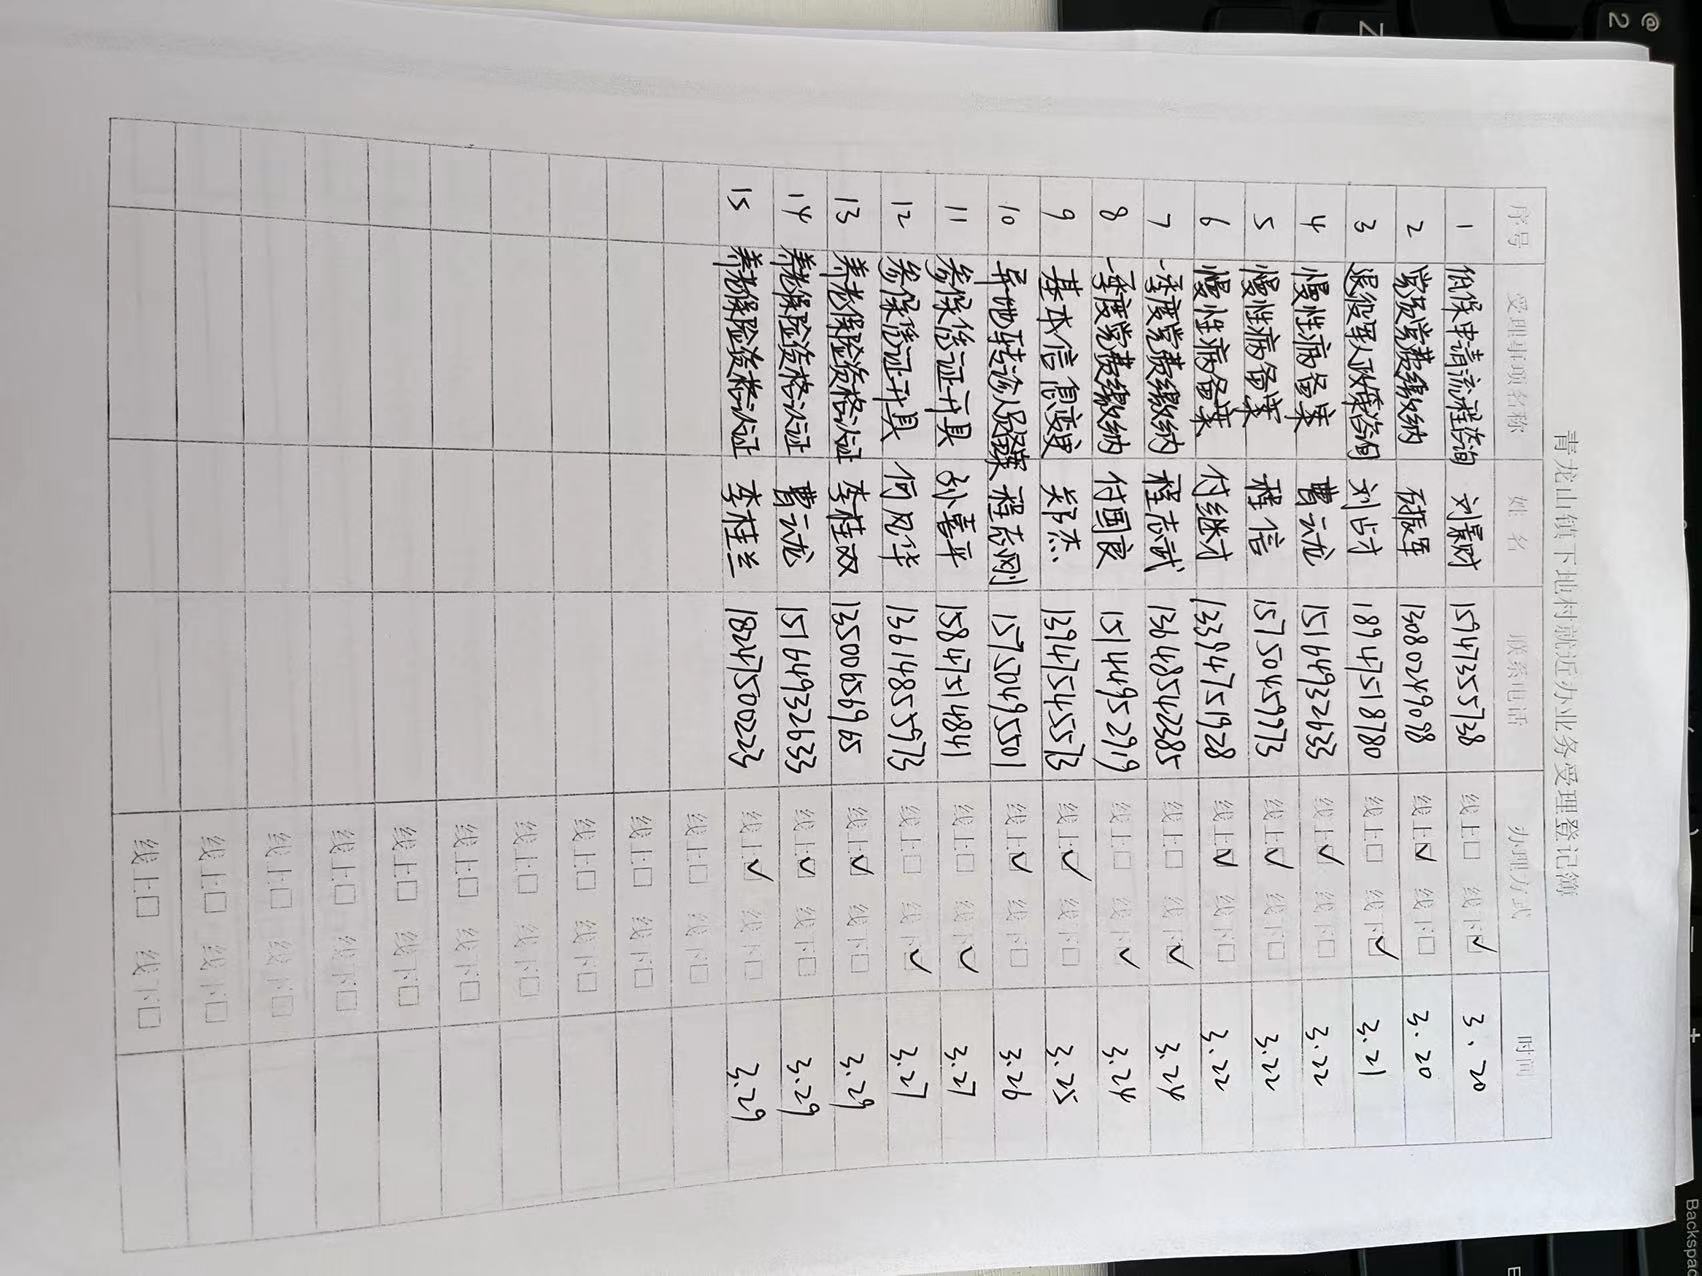 青龙山镇下地村就近办业务受理登记簿
序号 受理事项名称 姓名 联系电话 办理方式 时间
1 低保申请流程咨询 刘景财 15947355738 线上□ 线下☑ 3.20
2 党员党费缴纳 石振军 13880249098 线上☑ 线下□ 3.20
3 退役军人政策咨询 刘占才 18947518780 线上□ 线下☑ 3.21
4 慢性病备案 曹云龙 15164932633 线上☑ 线下□ 3.22
5 慢性病备案 程信 15750459773 线上☑ 线下□ 3.22
6 慢性病备案 付继才 13394751928 线上☑ 线下□ 3.22
7 一季度党费缴纳 程志武 13648542385 线上□ 线下☑ 3.24
8 一季度党费缴纳 付国良 15144952919 线上□ 线下☑ 3.24
9 基本信息变更 郑杰 13947545573 线上☑ 线下□ 3.25
10 异地转诊人员备案 程志刚 15750495501 线上☑ 线下□ 3.26
11 参保凭证开具 孙喜平 15847514841 线上□ 线下☑ 3.27
12 参保凭证开具 何凤华 13614855973 线上□ 线下☑ 3.27
13 养老保险资格认证 李桂双 13500656965 线上☑ 线下□ 3.29
14 养老保险资格认证 曹云龙 15164932633 线上☑ 线下□ 3.29
15 养老保险资格认证 李桂兰 18247500223 线上☑ 线下□ 3.29
线上□ 线下□
线上□ 线下□
线上□ 线下□
线上□ 线下□
线上□ 线下□
线上□ 线下□
线上□ 线下□
线上□ 线下□
线上□ 线下□
线上□ 线下□
@
2
Z
+
Backspac